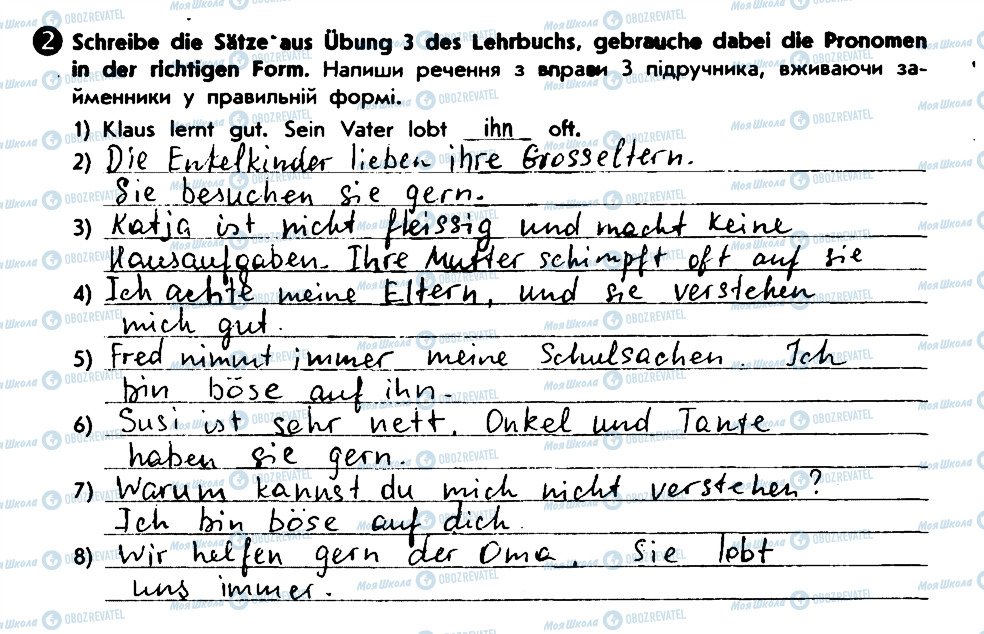 2 Schreibe die Sätze aus Übung 3 des Lehrbuchs, gebrauche dabei die Pronomen
in der richtigen Form. Напиши речення з вправи 3 підручника, вживаючи за-
йменники у правильній формі.
1) Klaus lernt gut. Sein Vater lobt ihn oft.
2) Die Enkelkinder lieben ihre Grosseltern.
Sie besuchen sie gern.
3) Katja ist nicht fleissig und macht keine
Hausaufgaben. Ihre Mutter schimpft oft auf sie
4) Ich achte meine Eltern, und sie verstehen
mich gut.
5) Fred nimmt immer meine Schulsachen. Ich
bin böse auf ihn.
6) Susi ist sehr nett. Onkel und Tante
haben sie gern.
7) Warum kannst du mich nicht verstehen?
Ich bin böse auf dich.
8) Wir helfen gern der Oma. Sie lobt
uns immer.
МояШкола OBOZREVATEL